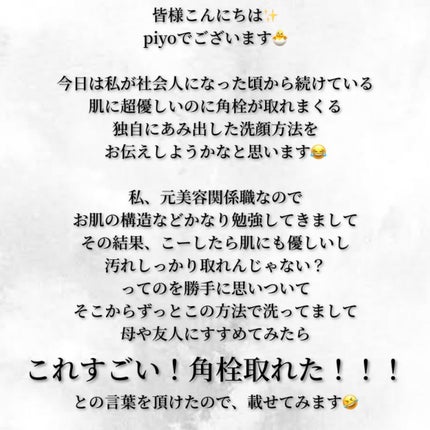 皆様こんにちは✨
piyoでございます🐣
今日は私が社会人になった頃から続けている
肌に超優しいのに角栓が取れまくる
独自にあみ出した洗顔方法を
お伝えしようかなと思います😂
私、元美容関係職なので
お肌の構造などかなり勉強してきまして
その結果、こーしたら肌にも優しいし
汚れしっかり取れんじゃない？
ってのを勝手に思いついて
そこからずっとこの方法で洗ってまして
母や友人にすすめてみたら
これすごい！角栓取れた！！！
との言葉を頂けたので、載せてみます🤣